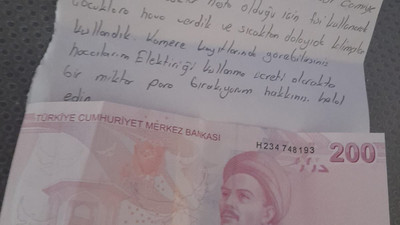 olduğu için
çocuklara hava verdik ve sıcaktan dolayıda klimayı
kullandık. Kamera kayıtlarında görebilirsiniz
hocalarım Elektriği kullanma ücreti olarakta
bir miktar para bırakıyorum hakkınızı helal
edin
TÜRKİYE CUMHURİYET MERKEZ BANKASI
H234748193
200